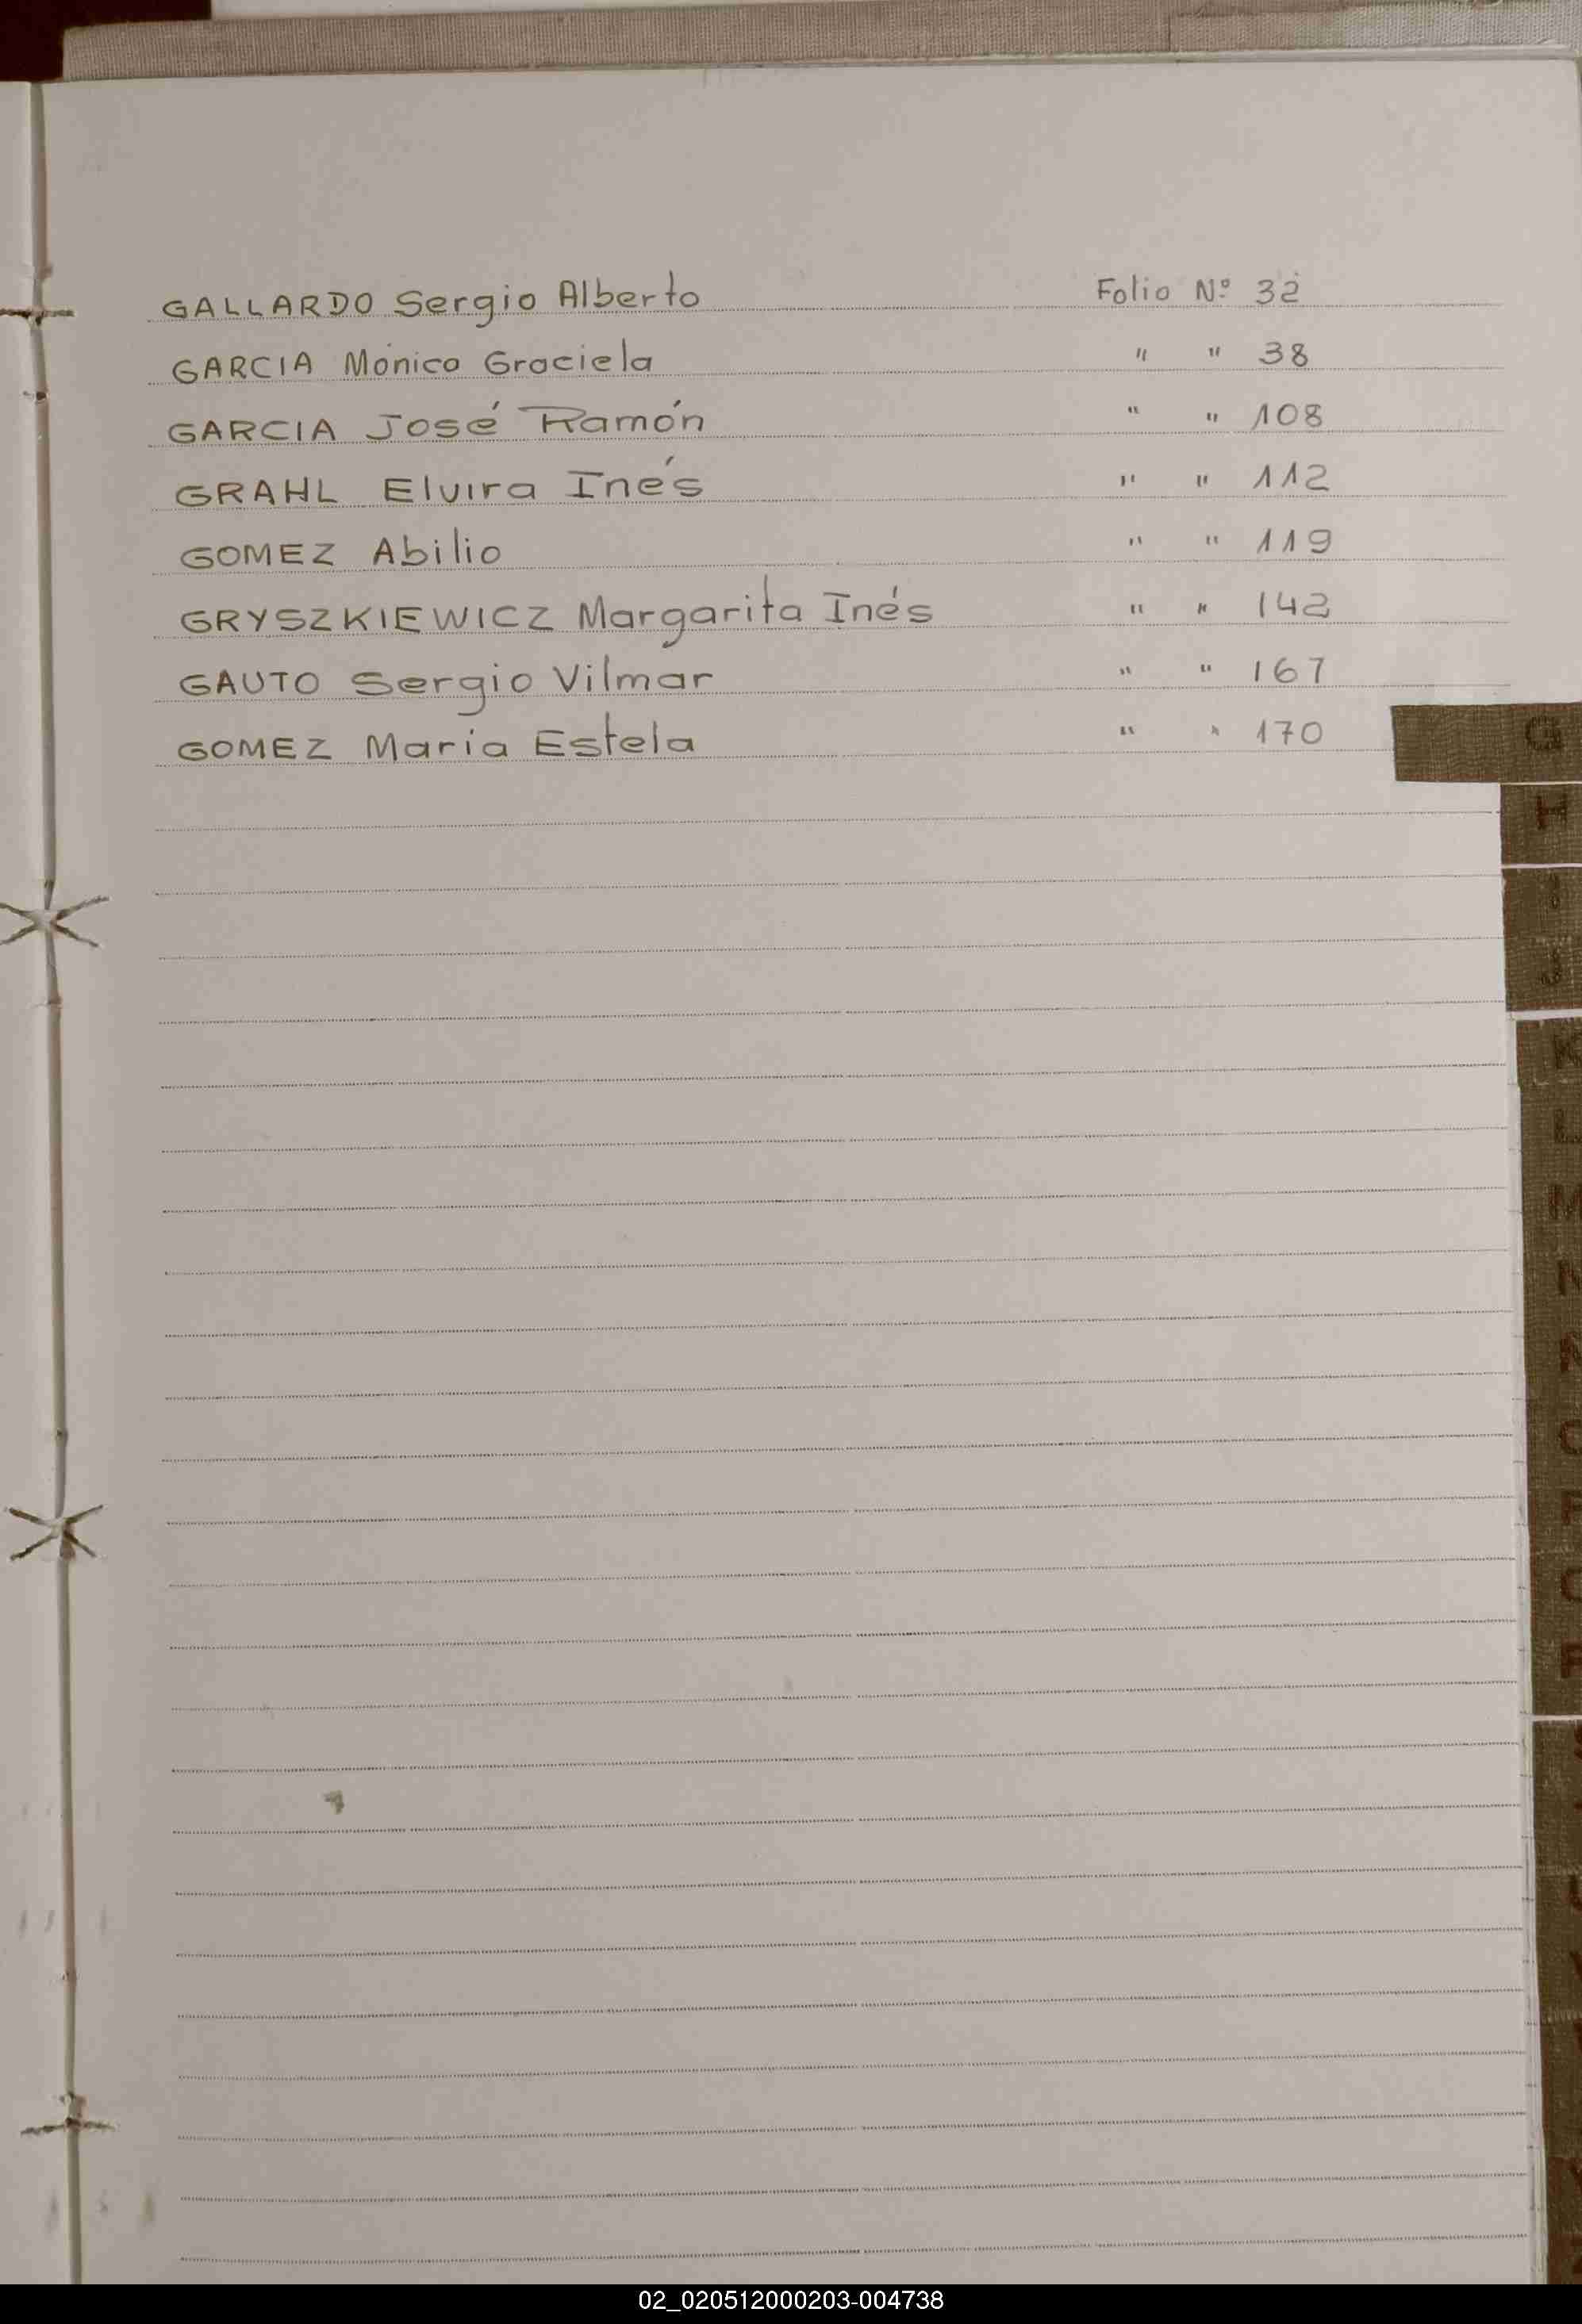 GALLARDO Sergio Alberto Folio Nº 32
GARCIA Mónica Graciela " " 38
GARCIA José Ramón " " 108
GRAHL Elvira Inés " " 112
GOMEZ Abilio " " 119
GRYSZKIEWICZ Margarita Inés " " 142
GAUTO Sergio Vilmar " " 167
GOMEZ María Estela " " 170
G
H
I
J
K
L
M
N
Ñ
O
P
02_020512000203-004738